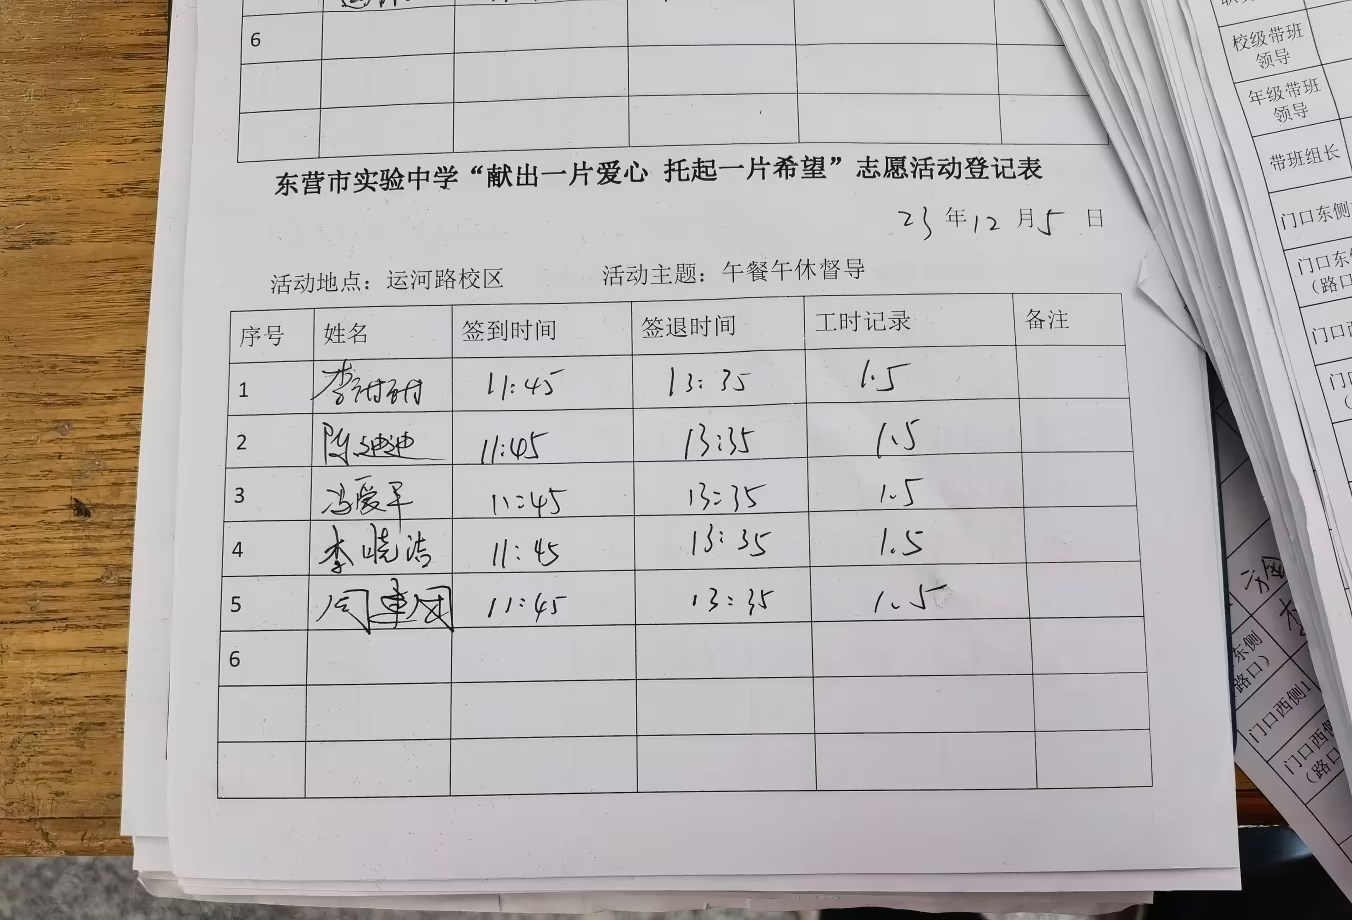 6
东营市实验中学“献出一片爱心 托起一片希望”志愿活动登记表
23 年 12 月 5 日
活动地点：运河路校区 活动主题：午餐午休督导
序号 姓名 签到时间 签退时间 工时记录 备注
1 11:45 13:35 1.5
2 陈迪迪 11:45 13:35 1.5
3 冯爱军 11:45 13:35 1.5
4 李晓洁 11:45 13:35 1.5
5 11:45 13:35 1.5
6
校级带班
领导
年级带班
领导
带班组长
门口东侧
门口东
（路口
门口
门口
东侧
路口）
门口西侧1
门口西侧
（路口